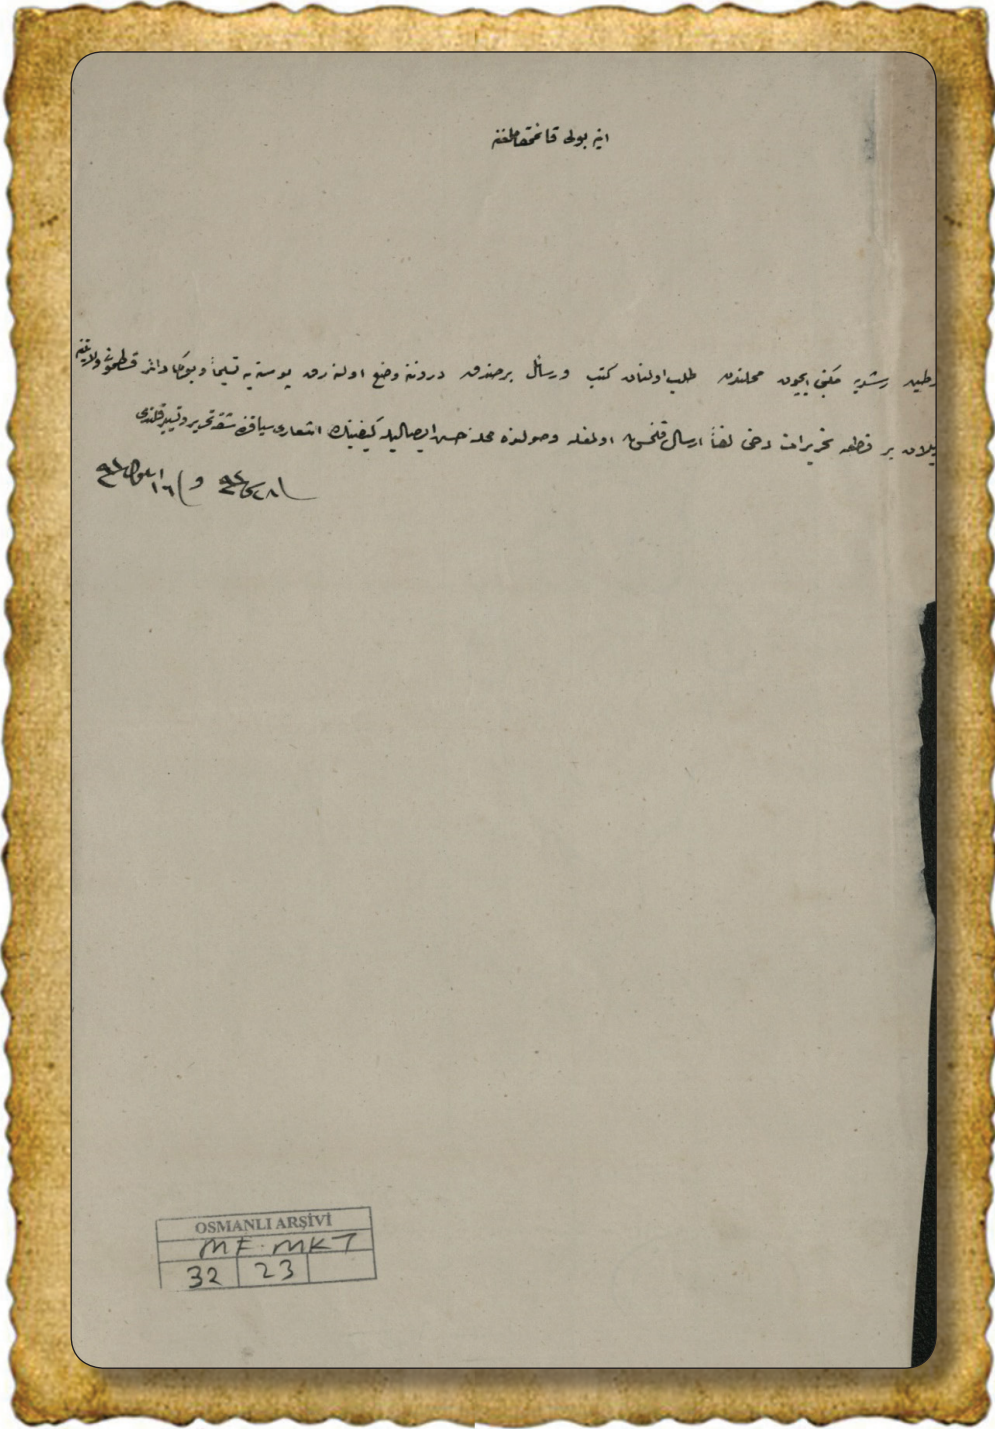 اینه بولی قائممقاملغنه
رشدیه مکتبی ایچون محلندن طلب اولنان کتب و رسائل بر صندوق دروننه وضع اولنه رق پوسته یه تسلیماً و بوکا دائر قسطمونی ولایتنه
بر قطعه تحریرات دخی لفاً ارسال قلنمش اولمغله وصولنده محلنه حسن ایصالیله کیفیتك اشعاری سیاقنده شقه تحریر و تسییر قلندی
و
OSMANLI ARŞİVİ
MF.MKT
32 23